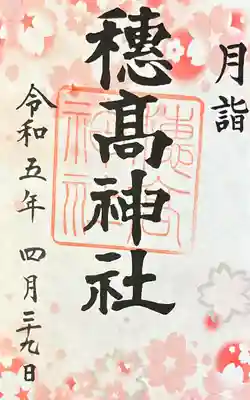 月詣
穗髙神社
令和五年 四月二十九日